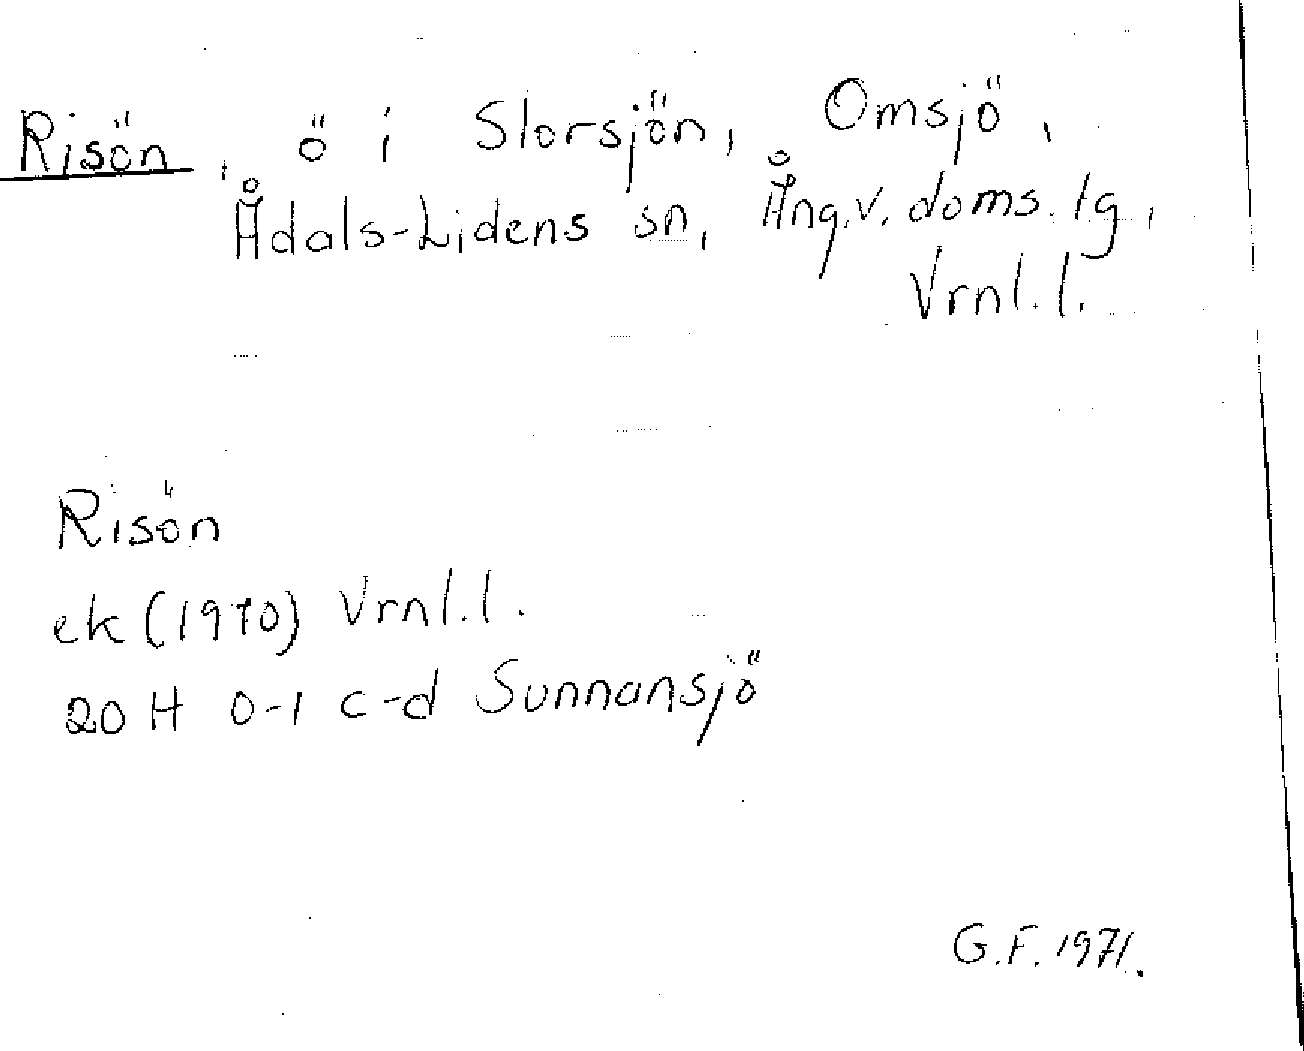 Risön, ö i Storsjön, Omsjö,
Ådals-Lidens sn, Ång.v. doms. lg,
Vrnl. l.
Risön
ek (1970) Vrnl. l.
20 H 0-1 c-d Sunnansjö
G.F. 1971.